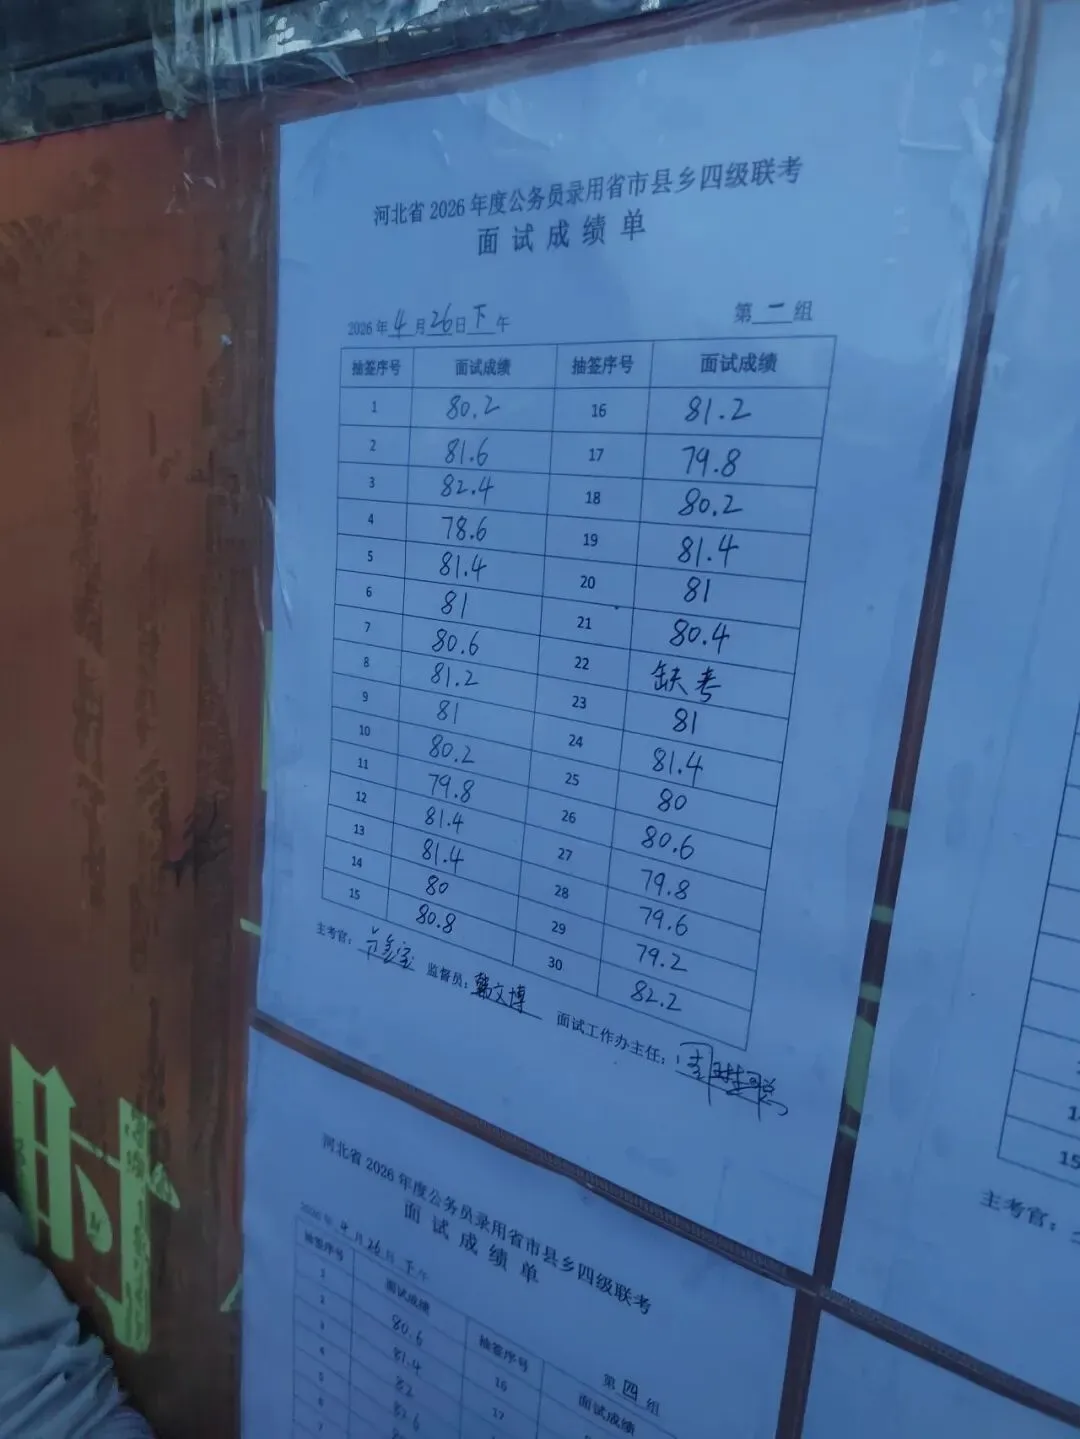 河北省2026年度公务员录用省市县乡四级联考
面试成绩单
2026年4月26日下午 第二组
抽签序号 面试成绩 抽签序号 面试成绩
1 80.2 16 81.2
2 81.6 17 79.8
3 82.4 18 80.2
4 78.6 19 81.4
5 81.4 20 81
6 81 21 80.4
7 80.6 22 缺考
8 81.2 23 81
9 81 24 81.4
10 80.2 25 80
11 79.8 26 80.6
12 81.4 27 79.8
13 81.4 28 79.6
14 80 29 79.2
15 80.8 30 82.2
主考官： 监督员：韩文博 面试工作办主任：
河北省2026年度公务员录用省市县乡四级联考
面试成绩单
2026年4月26日下午 第四组
抽签序号 面试成绩 抽签序号 面试成绩
1 80.6 16
2 81.4 17
3 82
4
5
6
7
15
主考官：
时